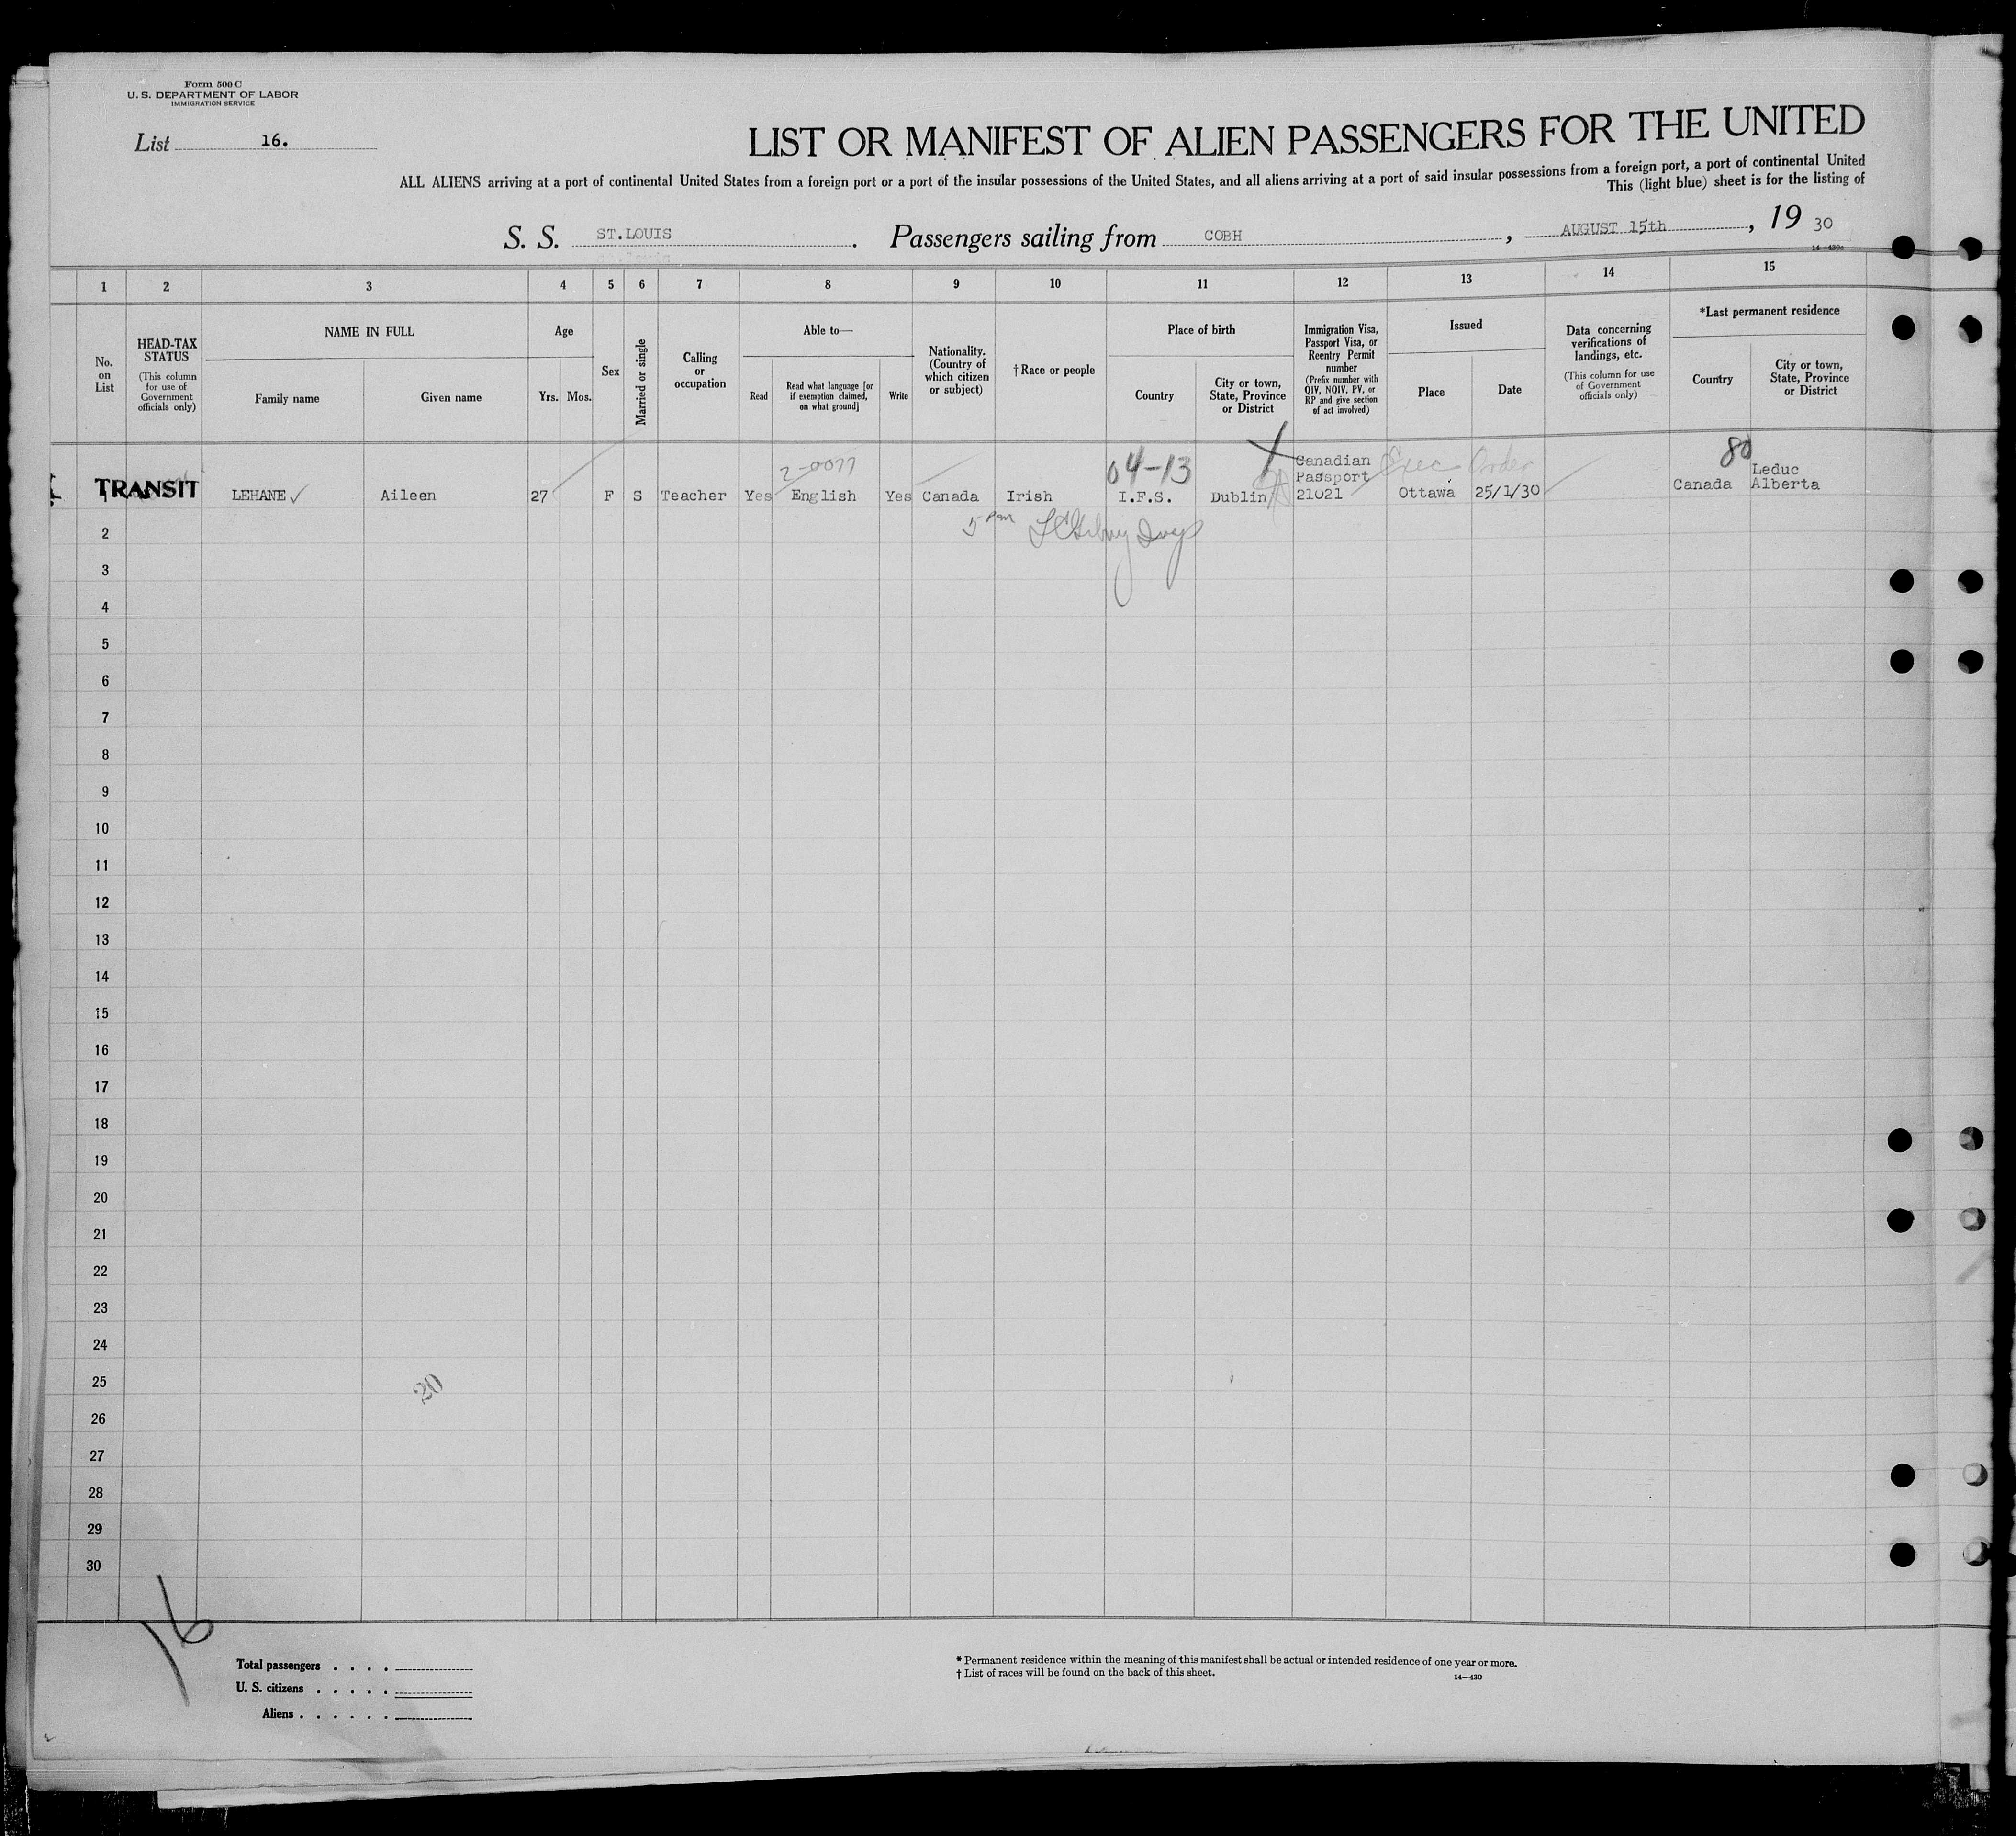 Form 500 C
U. S. DEPARTMENT OF LABOR
IMMIGRATION SERVICE
List 16.
LIST OR MANIFEST OF ALIEN PASSENGERS FOR THE UNITED
ALL ALIENS arriving at a port of continental United States from a foreign port or a port of the insular possessions of the United States, and all aliens arriving at a port of said insular possessions from a foreign port, a port of continental United
This (light blue) sheet is for the listing of
S. S. ST.LOUIS . Passengers sailing from COBH , AUGUST 15th , 19 30
1 2 3 4 5 6 7 8 9 10 11 12 13 14 15
No. on List
HEAD-TAX STATUS
(This column for use of Government officials only)
NAME IN FULL
Family name Given name
Age
Yrs. Mos.
Sex
Married or single
Calling or occupation
Able to—
Read
Read what language [or if exemption claimed, on what ground]
Write
Nationality. (Country of which citizen or subject)
†Race or people
Place of birth
Country
City or town, State, Province or District
Immigration Visa, Passport Visa, or Reentry Permit number
(Prefix number with QIV, NQIV, PV, or RP and give section of act involved)
Issued
Place Date
Data concerning verifications of landings, etc.
(This column for use of Government officials only)
*Last permanent residence
Country
City or town, State, Province or District
2-0077 04-13 Exec Order 80
TRANSIT LEHANE ✓ Aileen 27 F S Teacher Yes English Yes Canada Irish I.F.S. Dublin Canadian Passport 21021 Ottawa 25/1/30 Canada Leduc Alberta
2
3
4
5
6
7
8
9
10
11
12
13
14
15
16
17
18
19
20
21
22
23
24
25
20
26
27
28
29
30
16
Total passengers . . . .
U. S. citizens . . . . .
Aliens . . . . . .
* Permanent residence within the meaning of this manifest shall be actual or intended residence of one year or more.
† List of races will be found on the back of this sheet.
14—430